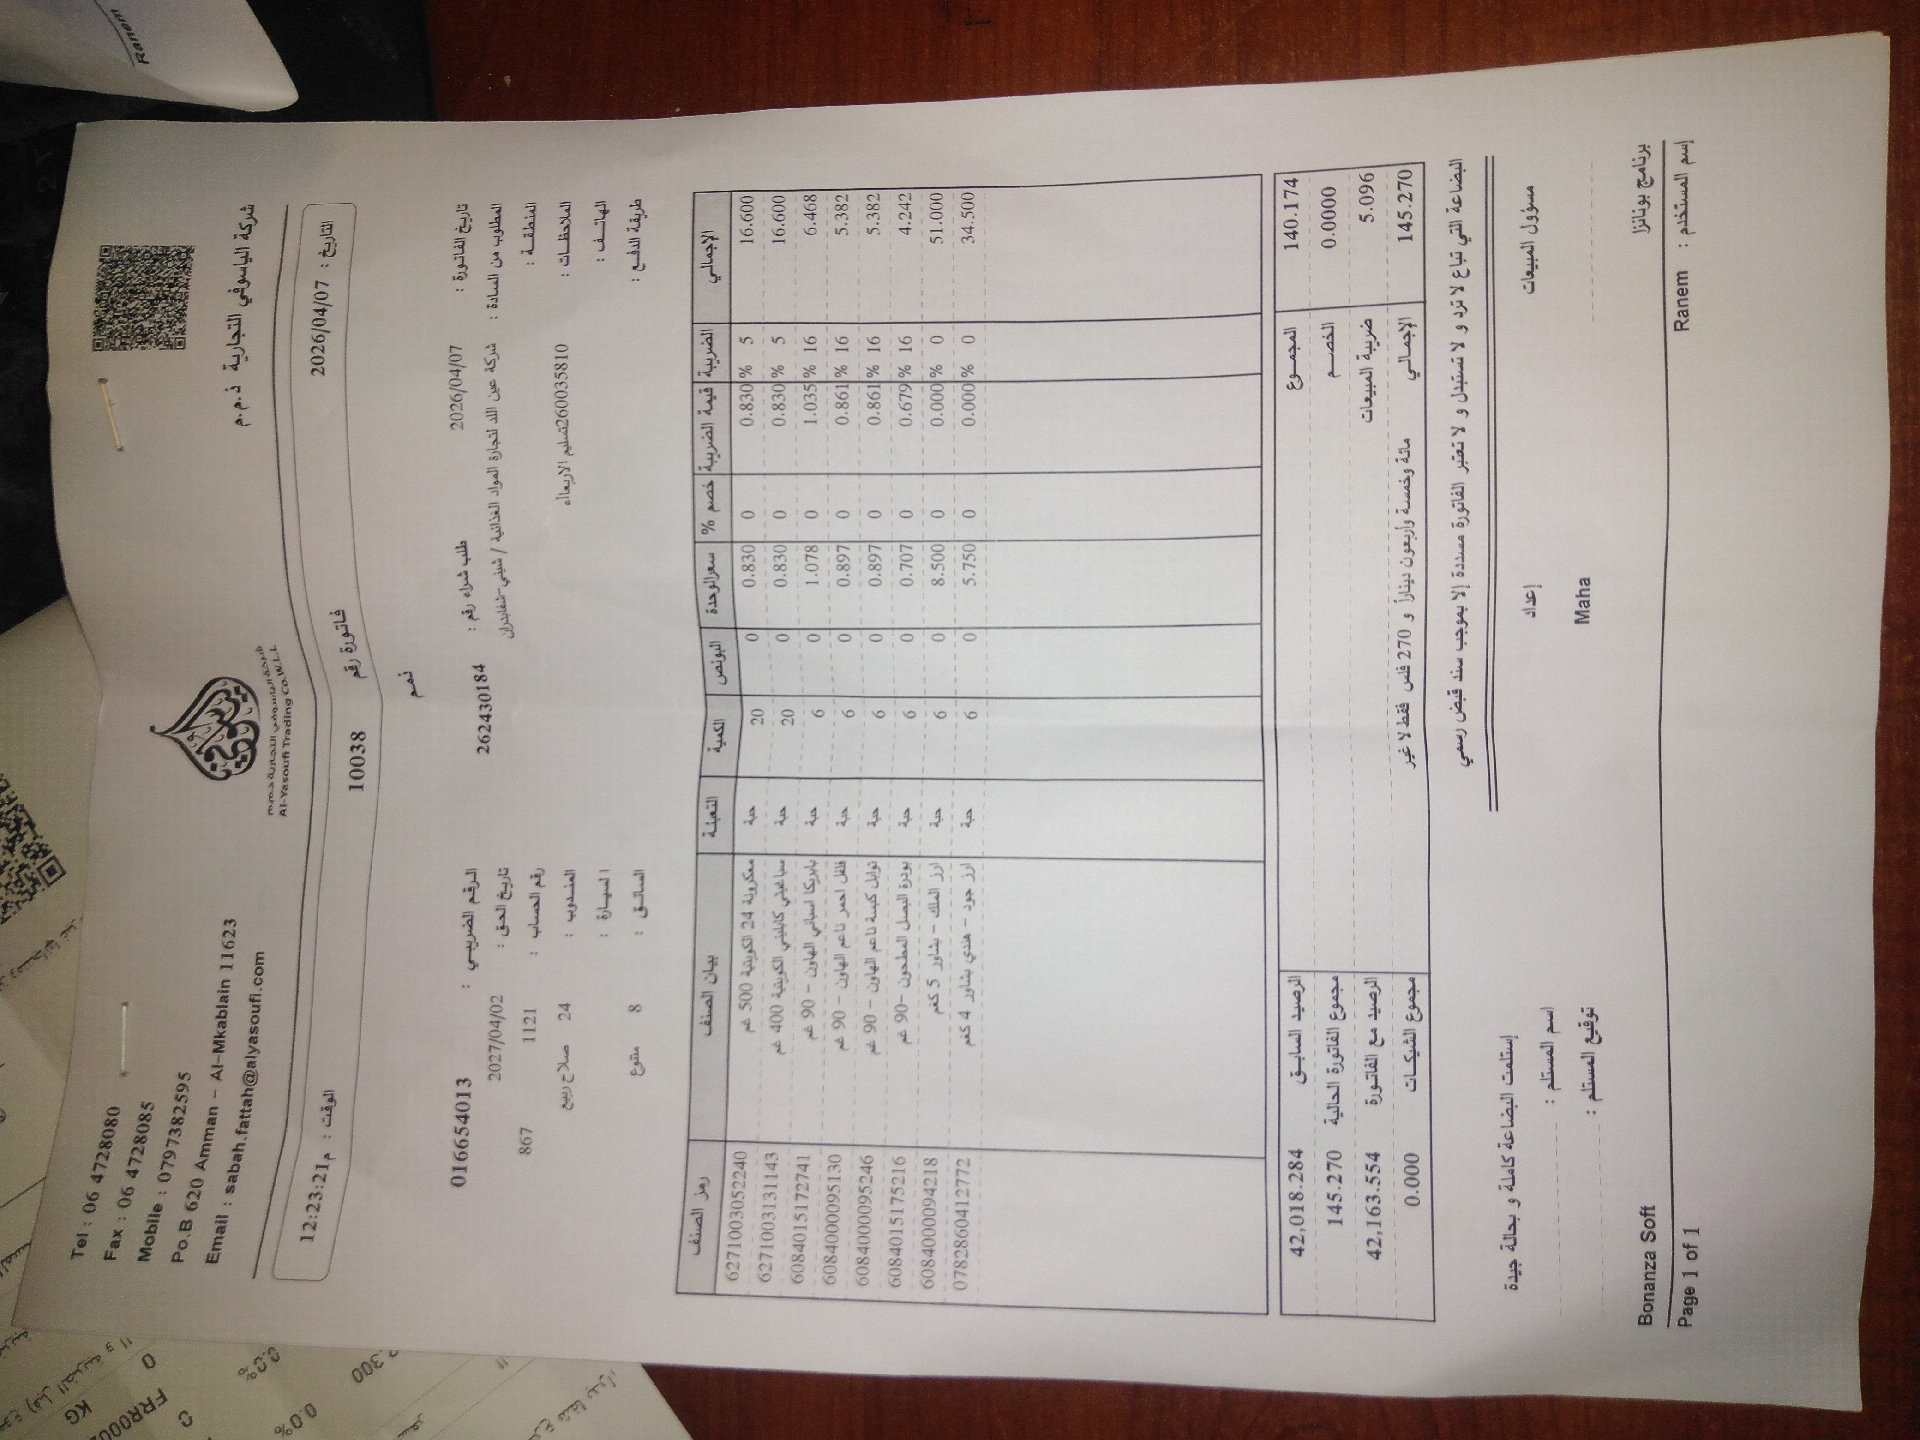 Tel : 06 4728080
Fax : 06 4728085
Mobile : 0797382595
Po.B 620 Amman - Al-Mkablain 11623
Email : sabah.fattah@alyasoufi.com
شركة الياسوفي التجارية ذ.م.م
Al-Yasoufi Trading Co.W.L.L
التاريخ : 2026/04/07
فاتورة رقم 10038
الوقت : 12:23:21م
ذمم
تاريخ الفاتورة : 2026/04/07 طلب شراء رقم : 262430184 الرقم الضريبي : 016654013
المطلوب من السادة : شركة عين اللد لتجارة المواد الغذائية / شيني-شفابدران تاريخ الحق : 2027/04/02
المنطقة : رقم الحساب : 1121 867
الملاحظات : 260035810تسليم الاربعاء المندوب : 24 صلاح ربيع
الهاتف : السيارة :
طريقة الدفع : السائق : 8 متنوع
رمز الصنف بيان الصنف التعبئة الكمية البونص سعرالوحدة خصم % قيمة الضريبة الضريبة الإجمالي
6271003052240 معكرونة 24 الكويتية 500 غم حبة 20 0 0.830 0 0.830 % 5 16.600
6271003131143 سباغيتي كابليني الكويتية 400 غم حبة 20 0 0.830 0 0.830 % 5 16.600
6084015172741 بابريكا اسباني الهاون - 90 غم حبة 6 0 1.078 0 1.035 % 16 6.468
6084000095130 فلفل احمر ناعم الهاون - 90 غم حبة 6 0 0.897 0 0.861 % 16 5.382
6084000095246 توابل كبسة ناعم الهاون - 90 غم حبة 6 0 0.897 0 0.861 % 16 5.382
6084015175216 بودرة البصل المطحون -90 غم حبة 6 0 0.707 0 0.679 % 16 4.242
6084000094218 ارز الملك - بشاور 5 كغم حبة 6 0 8.500 0 0.000 % 0 51.000
0782860412772 ارز جود - هندي بشاور 4 كغم حبة 6 0 5.750 0 0.000 % 0 34.500
المجموع 140.174 الرصيد السابق 42,018.284
الخصم 0.0000 مجموع الفاتورة الحالية 145.270
ضريبة المبيعات 5.096 الرصيد مع الفاتورة 42,163.554
الإجمالي 145.270 مائة وخمسة وأربعون ديناراً و 270 فلس فقط لا غير مجموع الشيكات 0.000
البضاعة التي تباع لا ترد و لا تستبدل و لا تعتبر الفاتورة مسددة إلا بموجب سند قبض رسمي
مسؤول المبيعات إعداد إستلمت البضاعة كاملة و بحالة جيدة
اسم المستلم :
Maha توقيع المستلم :
برنامج بونانزا Bonanza Soft
إسم المستخدم : Ranem Page 1 of 1
Ranem
FRR000
KG
0
0.0%
0.0%